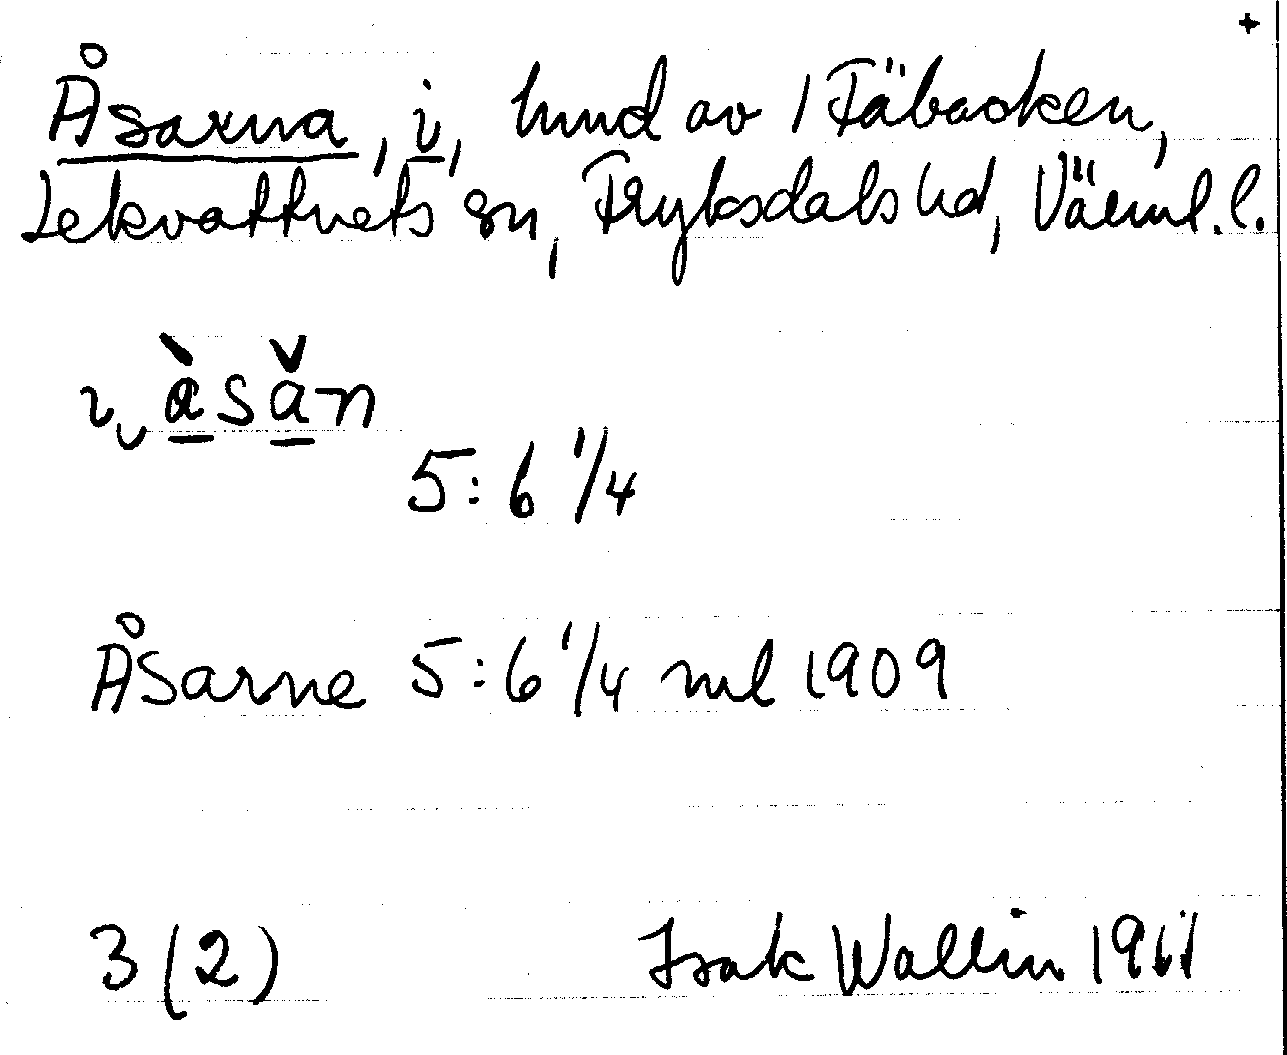 +
Åsarna, i, hmd av 1 Fäbacken,
Lekvattnets sn, Fryksdals hd, Värml. l.
ɩ ̮ àsǎn
5:6 1/4
Åsarne 5:6 1/4 ml 1909
3 (2) Isak Wallin 1961